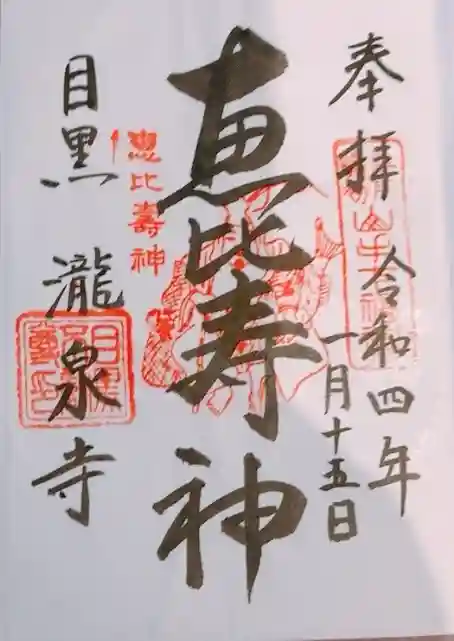 奉拝
令和四年
一月十五日
恵比寿神
恵比壽神
目黒 瀧泉寺